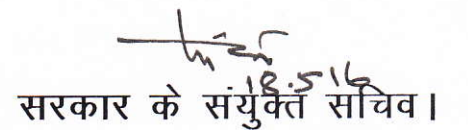 18.5.16
सरकार के संयुक्त सचिव।